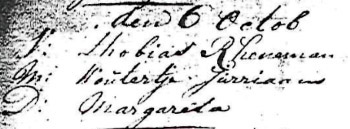 den 6 Octob
V: Thobias RCheneman
M: Woutertje Jurriaans
D: Margareta